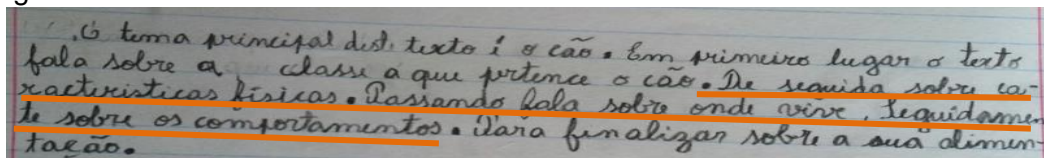 .O tema principal dest. texto é o cão. Em primeiro lugar o texto
fala sobre a classe a que pertence o cão. De seguida sobre ca-
racteristicas físicas. Passando fala sobre onde vive, seguidamen-
te sobre os comportamentos. Para finalizar sobre a sua alimen-
tação.